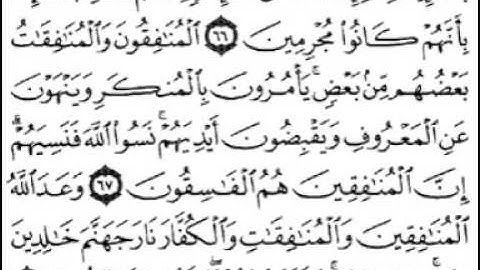 بِأَنَّهُمْ كَانُوا۟ مُجْرِمِينَ ٦٦ ٱلْمُنَٰفِقُونَ وَٱلْمُنَٰفِقَٰتُ
بَعْضُهُم مِّنۢ بَعْضٍ ۚ يَأْمُرُونَ بِٱلْمُنكَرِ وَيَنْهَوْنَ
عَنِ ٱلْمَعْرُوفِ وَيَقْبِضُونَ أَيْدِيَهُمْ ۚ نَسُوا۟ ٱللَّهَ فَنَسِيَهُمْ ۗ
إِنَّ ٱلْمُنَٰفِقِينَ هُمُ ٱلْفَٰسِقُونَ ٦٧ وَعَدَ ٱللَّهُ
ٱلْمُنَٰفِقِينَ وَٱلْمُنَٰفِقَٰتِ وَٱلْكُفَّارَ نَارَ جَهَنَّمَ خَٰلِدِينَ